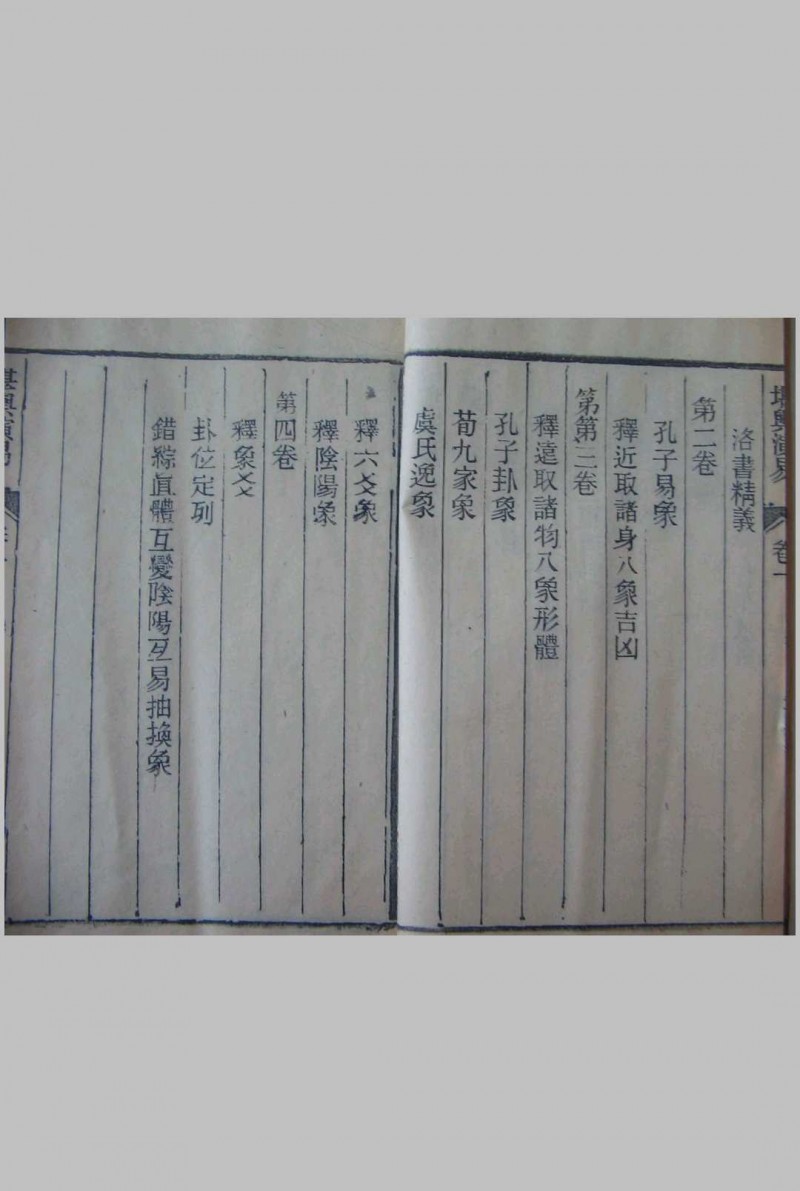 堪輿演易 卷一
洛書精義
第二卷
孔子易象
釋近取諸身八象吉凶
第第三卷
釋遠取諸物八象形體
孔子卦象
荀九家象
虞氏逸象
釋六爻象
釋陰陽象
第四卷
釋象爻
卦位定列
錯綜眞體互變陰陽互易抽換象
堪輿演易